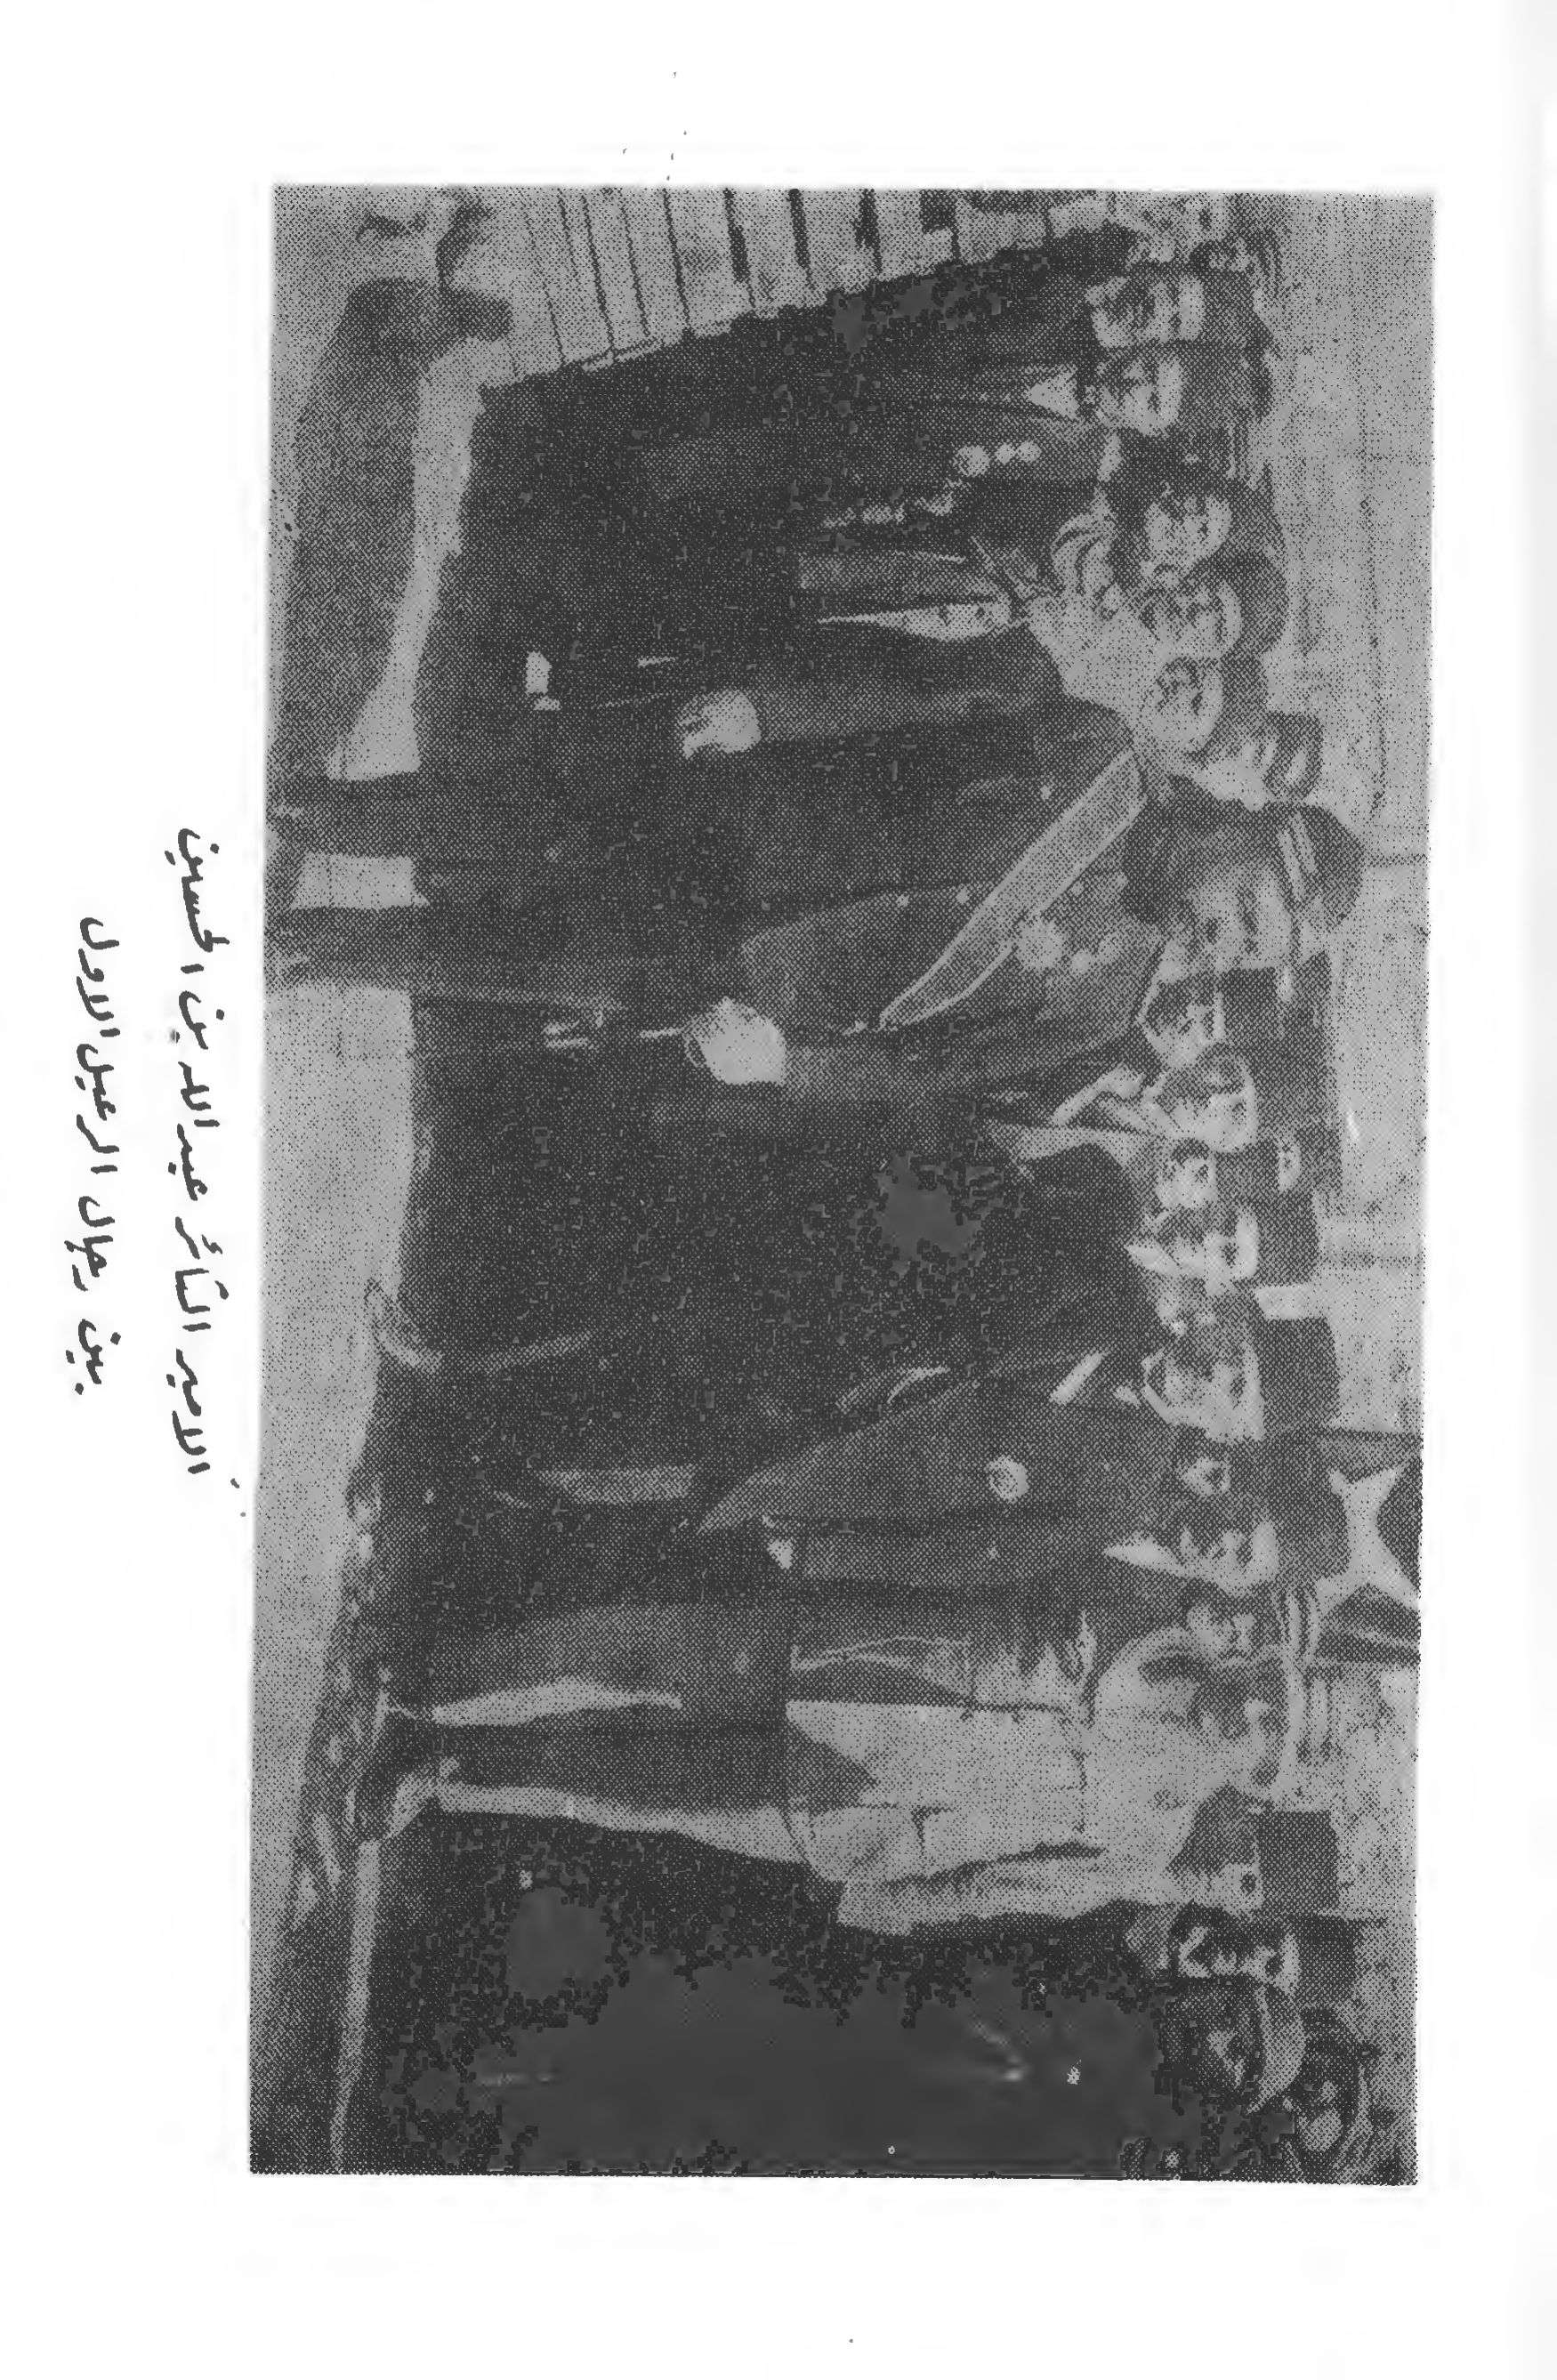 الامير الثائر عبدالله بن الحسين
بين رجال الرعيل الاول